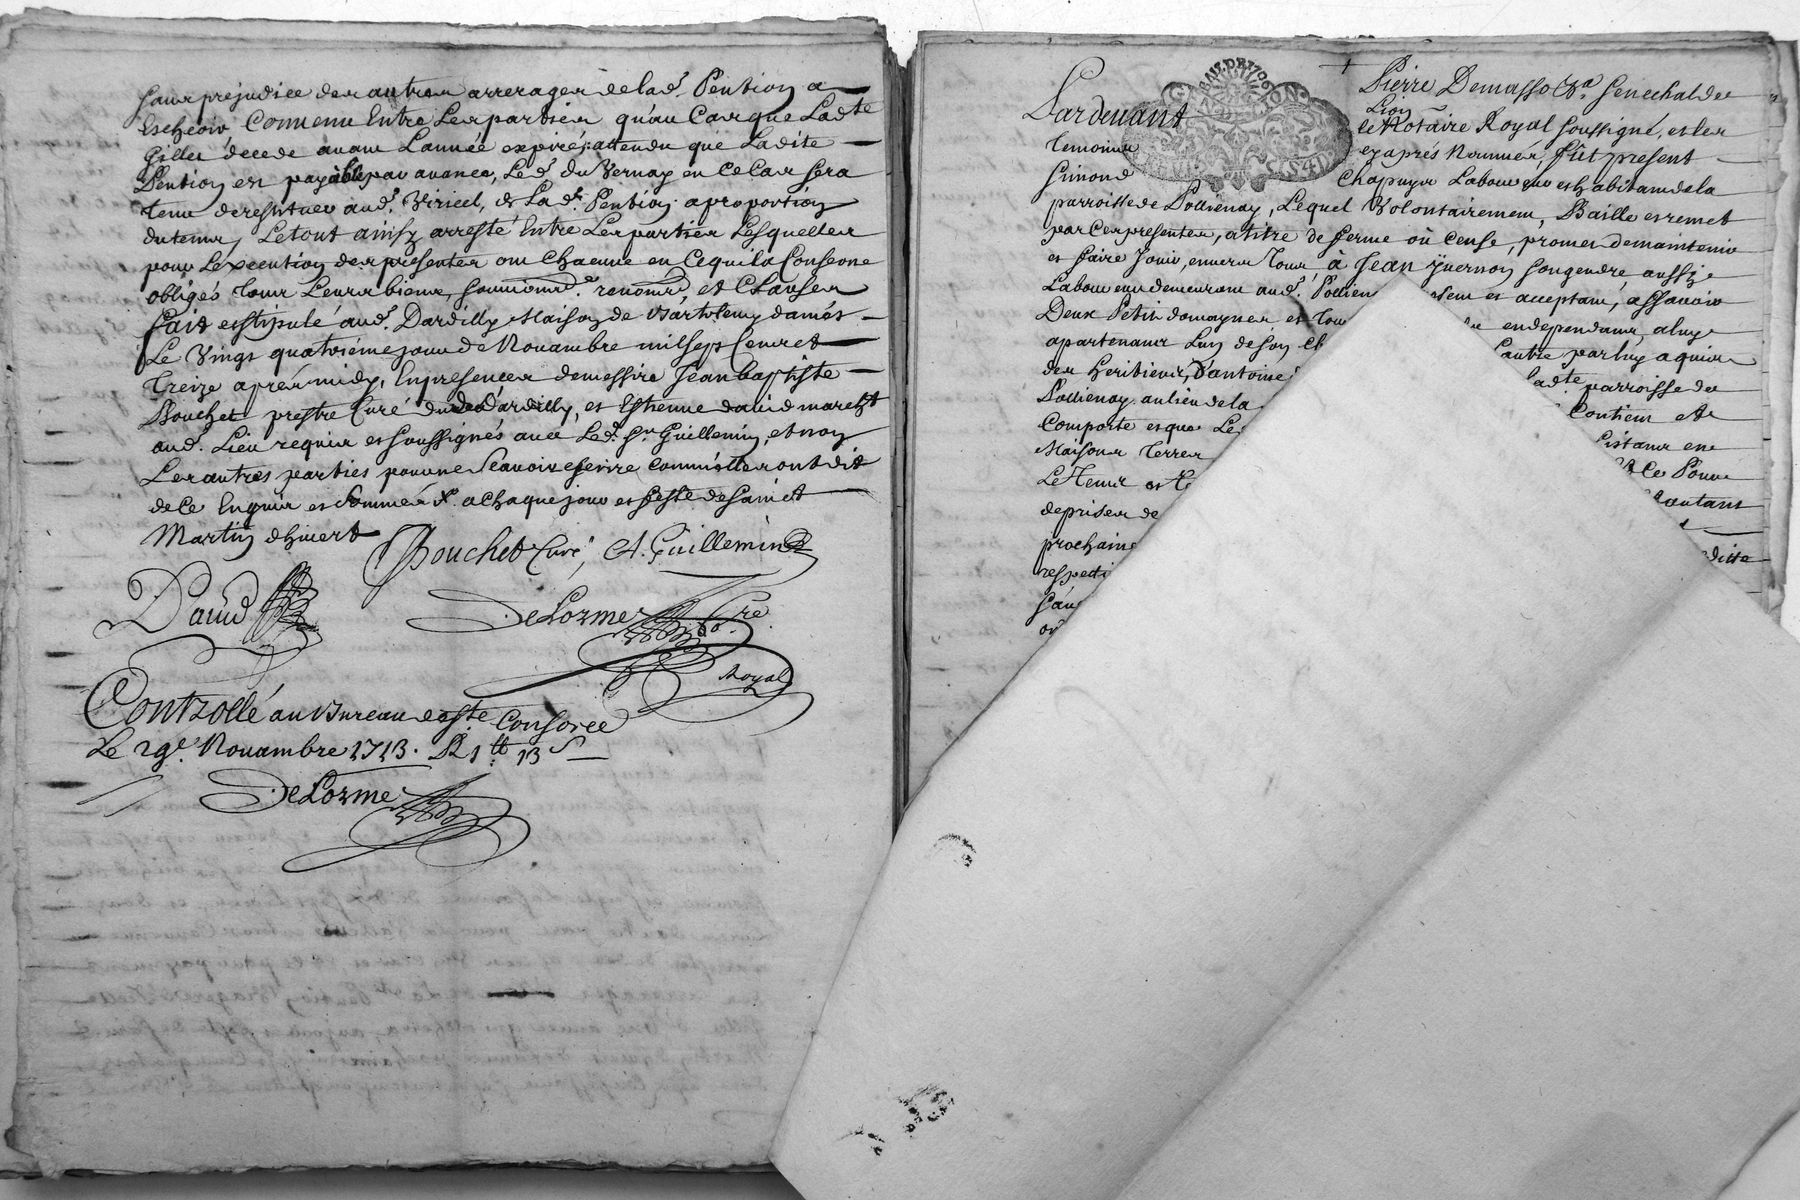 sans prejudice des autres arrerages de lad.e Pention a
Escheoir, Convenu Entre Les parties qu'au Cas que Ladte
Gillet décede avant L'année expirée, attendu que Ladite
Pention est payable par avance, Led. du Vernay en Ce Cas sera
tenu de restituer aud. Viricel, de Lad.e Pention a proportion
du temps, Le tout ainsy arresté Entre Les parties Lesquelles
pour L'execution des presentes ont Chacune en Ce qui la Conserne
obligés tous Leurs biens, soumiond. renond, et Clauses
fait et stipulé aud. Dardilly Maison de Bartolemy damés
Le Vingt quatriéme jour de Novambre mil sept Cens et
treize aprés midy, En presences de messire Jean baptiste
Bouchet prestre Curé dud. Dardilly, et Estienne david march.t
aud. Lieu requis et soussignés avec Led. Sr Guillemin, et non
Les autres parties pour ne scavoir escrire Comm' elles ont dit
de Ce Enquis et sommées X. a Chaque jour et feste de Sainct
Martin d'hivert
Bouchet Curé, A. Guillemin
David
DeLorme No.re
Royal
Controllé au Bureau de ste Consorce
Le 29e. Novambre 1713. R 1 tt 13 s
DeLorme
Pierre Demasso Sr. Senechal de
Lion
Pardevant
GEN DE LION
le Notaire Royal soussigné, et les
temoins
cy aprés Nommés, fût present
Simond
Chapuys Laboureur et habitant de la
parroisse de Pollienay, Lequel Volontairement, Baille et remet
par Ces presentes, a titre de ferme ou Cense, promet de maintenir
et faire Jouir, envers tous, à Jean Yvernon son gendre, aussy
Laboureur demeurant aud. Pollien
et acceptant, a sçavoir
Deux Petits domaynes et tou
en dependant, a luy
apartenant L'un de son Ch
L'autre par luy aquis
des heritiers, d'antoine
ladte parroisse de
Pollienay au lieu de la
Contient et
Comporte et que Le
Maisons Terres
Ce Pour
Le Temps et
autant
de prises de
prochaine
ditte
respecti